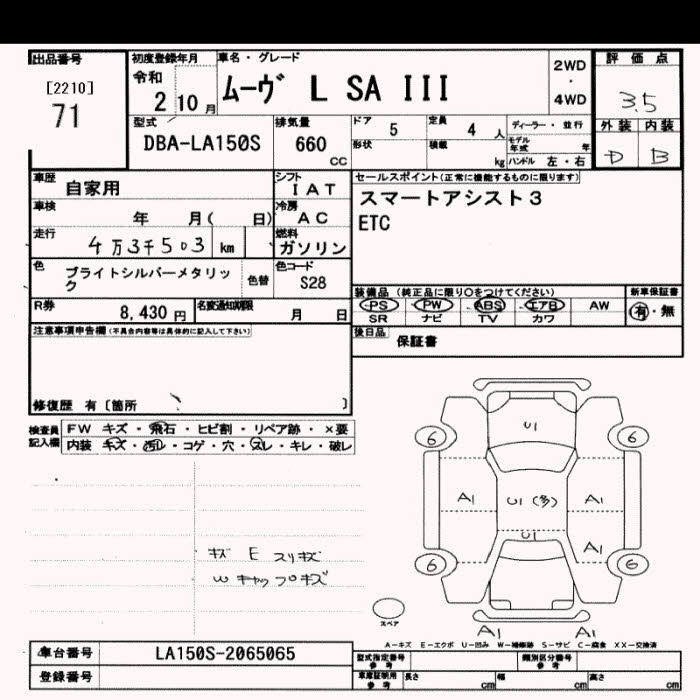 出品番号
[2210]
71
初度登録年月
令和
2 10 月
車名・グレード
ムーヴ L SA III
2WD
・
4WD
評価点
3.5
外装 内装
D B
型式
DBA-LA150S
排気量
660
cc
ドア 5
形状
定員 4 人
積載 kg
ディーラー・並行
モデル年式 年
ハンドル 左・右
車歴 自家用
シフト
IAT
車検 年 月( 日)
冷房
AC
走行 4万3千503 km
燃料
ガソリン
セールスポイント(正常に機能するものに限ります)
スマートアシスト3
ETC
色 ブライトシルバーメタリック
色替
色コード
S28
R券 8,430 円
名変通知期限 月 日
装備品(純正品に限り○をつけてください)
PS PW ABS エアB AW
SR ナビ TV カワ
新車保証書
有・無
後日品 保証書
注意事項申告欄(不具合内容等は具体的に記入して下さい)
修復歴 有〔箇所 〕
検査員記入欄
FW キズ・飛石・ヒビ割・リペア跡・×要
内装 キズ・汚レ・コゲ・穴・スレ・キレ・破レ
キズ E スリキズ
W キャップキズ
U1
6 6
A1 U1(多) A1
U1
A1
6 6
スペア
A1 A1
A-キズ E-エクボ U-凹み W-補修跡 S-サビ C-腐食 XX-交換済
車台番号 LA150S-2065065
登録番号
型式指定番号 参考
類別区分番号 参考
車庫証明用 参考 長さ cm 幅 cm 高さ cm